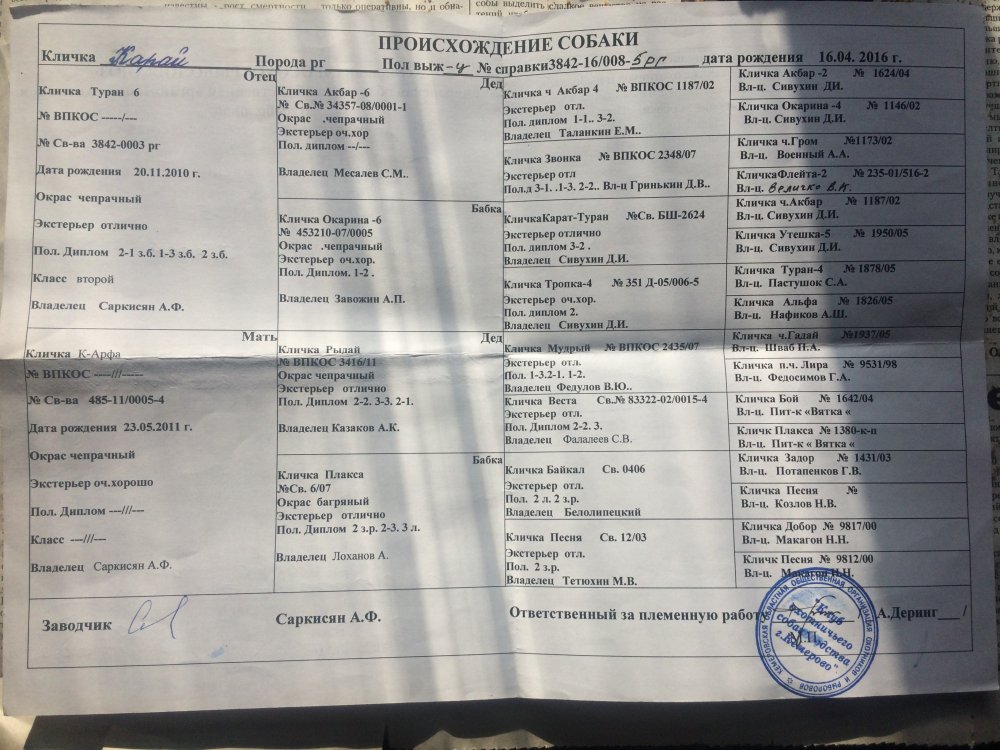 ПРОИСХОЖДЕНИЕ СОБАКИ
Кличка Карай Порода рг Пол выж-ц № справки3842-16/008-5рг дата рождения 16.04. 2016 г.
Отец
Кличка Туран 6
№ ВПКОС -----/---
№ Св-ва 3842-0003 рг
Дата рождения 20.11.2010 г.
Окрас чепрачный
Экстерьер отлично
Пол. Диплом 2-1 з.б. 1-3 з.б. 2 з.б.
Класс второй
Владелец Саркисян А.Ф.
Мать
Кличка К-Арфа
№ ВПКОС ----///-----
№ Св-ва 485-11/0005-4
Дата рождения 23.05.2011 г.
Окрас чепрачный
Экстерьер оч.хорошо
Пол. Диплом ---///---
Класс ---///---
Владелец Саркисян А.Ф.
Дед
Кличка Акбар -6
№ Св.№ 34357-08/0001-1
Окрас .чепрачный
Экстерьер оч.хор
Пол. диплом --/---
Владелец Месалев С.М..
Бабка
Кличка Окарина -6
№ 453210-07/0005
Окрас .чепрачный
Экстерьер оч.хор.
Пол. Диплом. 1-2 .
Владелец Завожин А.П.
Дед
Кличка Рыдай
№ ВПКОС 3416/11
Окрас чепрачный
Экстерьер отлично
Пол. Диплом 2-2. 3-3. 2-1.
Владелец Казаков А.К.
Бабка
Кличка Плакса
№Св. 6/07
Окрас багряный
Экстерьер отлично
Пол. Диплом 2 з.р. 2-3. 3 л.
Владелец Лоханов А.
Кличка ч Акбар 4 № ВПКОС 1187/02
Экстерьер отл.
Пол. диплом 1-1.. 3-2.
Владелец Таланкин Е.М..
Кличка Звонка № ВПКОС 2348/07
Экстерьер отл
Пол.д 3-1. .1-3. 2-2.. Вл-ц Гринькин Д.В..
КличкаКарат-Туран №Св. БШ-2624
Экстерьер отлично
Пол. диплом 3-2 .
Владелец Сивухин Д.И.
Кличка Тропка-4 № 351 Д-05/006-5
Экстерьер оч.хор.
Пол. диплом 2.
Владелец Сивухин Д.И.
Кличка Мудрый № ВПКОС 2435/07
Экстерьер отл.
Пол. 1-3.2-1. 1-2.
Владелец Федулов В.Ю..
Кличка Веста Св.№ 83322-02/0015-4
Экстерьер отл.
Пол. Диплом 2-2. 3.
Владелец Фалалеев С.В.
Кличка Байкал Св. 0406
Экстерьер отл.
Пол. 2 л. 2 з.р.
Владелец Белолипецкий
Кличка Песня Св. 12/03
Экстерьер отл.
Пол. 2 з.р.
Владелец Тетюхин М.В.
Кличка Акбар -2 № 1624/04
Вл-ц. Сивухин ДИ.
Кличка Окарина -4 № 1146/02
Вл-ц. Сивухин Д.И.
Кличка ч.Гром №1173/02
Вл-ц. Военный А.А.
КличкаФлейта-2 № 235-01/516-2
Вл-ц. Величко В.К.
Кличка ч.Акбар № 1187/02
Вл-ц. Сивухин Д.И.
Кличка Утешка-5 № 1950/05
Вл-ц. Сивухин Д.И.
Кличка Туран-4 № 1878/05
Вл-ц. Пастушок С.А.
Кличка Альфа № 1826/05
Вл-ц. Нафиков А.Ш.
Кличка ч.Гадай №1937/05
Вл-ц. Шваб Н.А.
Кличка п.ч. Лира № 9531/98
Вл-ц. Федосимов Г.А.
Кличка Бой № 1642/04
Вл-ц. Пит-к «Вятка «
Кличк Плакса № 1380-к-п
Вл-ц. Пит-к « Вятка «
Кличка Задор № 1431/03
Вл-ц. Потапенков Г.В.
Кличка Песня №
Вл-ц. Козлов Н.В.
Кличка Добор № 9817/00
Вл-ц. Макагон Н.Н.
Кличк Песня № 9812/00
Вл-ц. Макагон Н.Н.
Заводчик Саркисян А.Ф. Ответственный за племенную работу А.Деринг___/
М.П.
КЕМЕРОВСКАЯ ОБЛАСТНАЯ ОБЩЕСТВЕННАЯ ОРГАНИЗАЦИЯ ОХОТНИКОВ И РЫБОЛОВОВ
"Клуб
охотничьего
собаководства
г.Кемерово"